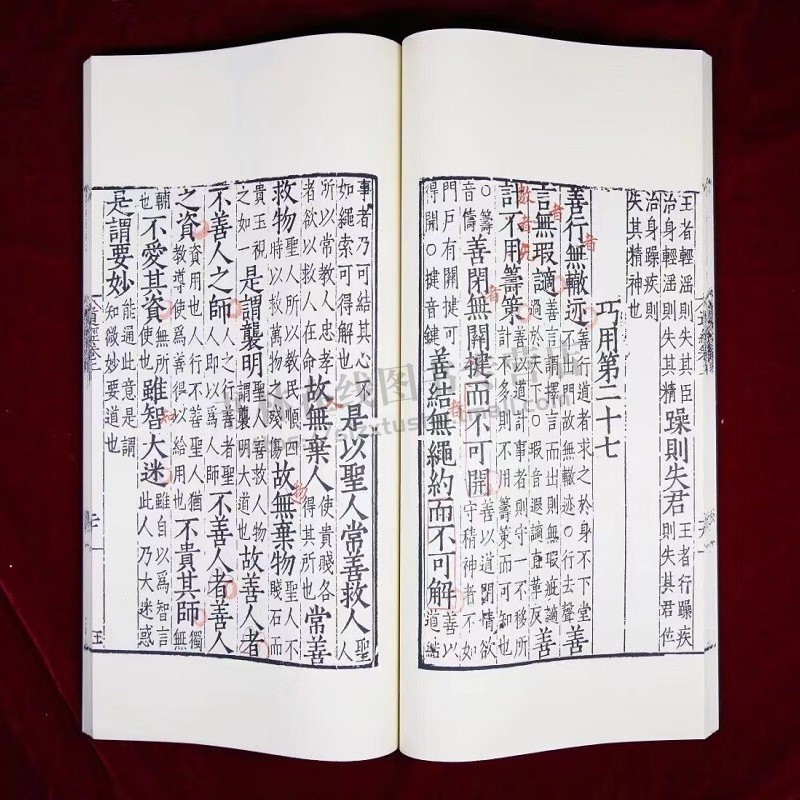 王者輕淫則失其臣治身輕淫則失其精躁則失君王者行躁疾則失其君位
治身躁疾則失其精神也
巧用第二十七
善行無轍迹善行道者求之於身不下堂不出門故無轍迹○行去聲善
言無瑕讁善言謂擇言而出則無瑕疵讁過於天下○瑕音遐讁直革反善
計不用籌策善以道計事者則守一不移所計不多則不用籌策而可知也
○籌音儔善閉無關揵而不可開善以道閉情欲守精神者不如
門戶有關揵可得開○揵音鍵善結無繩約而不可解善以道結
事者乃可結其心不如繩索可得解也是以聖人常善救人聖人
所以常教人忠孝者欲以救人在命故無棄人使貴賤各得其所也常善
救物聖人所以教民順四時以救萬物之殘傷故無棄物聖人不賤石而
貴玉視之如一是謂襲明聖人善救人物是謂襲明大道也故善人者
不善人之師人之行善者聖人即以爲人師不善人者善人
之資資用也人行不善聖人猶教導使爲善得以給用也不貴其師獨無
輔也不愛其資無所使也雖智大迷雖自以爲智言此人乃大迷惑
是謂要妙能通此意是謂知微妙要道也